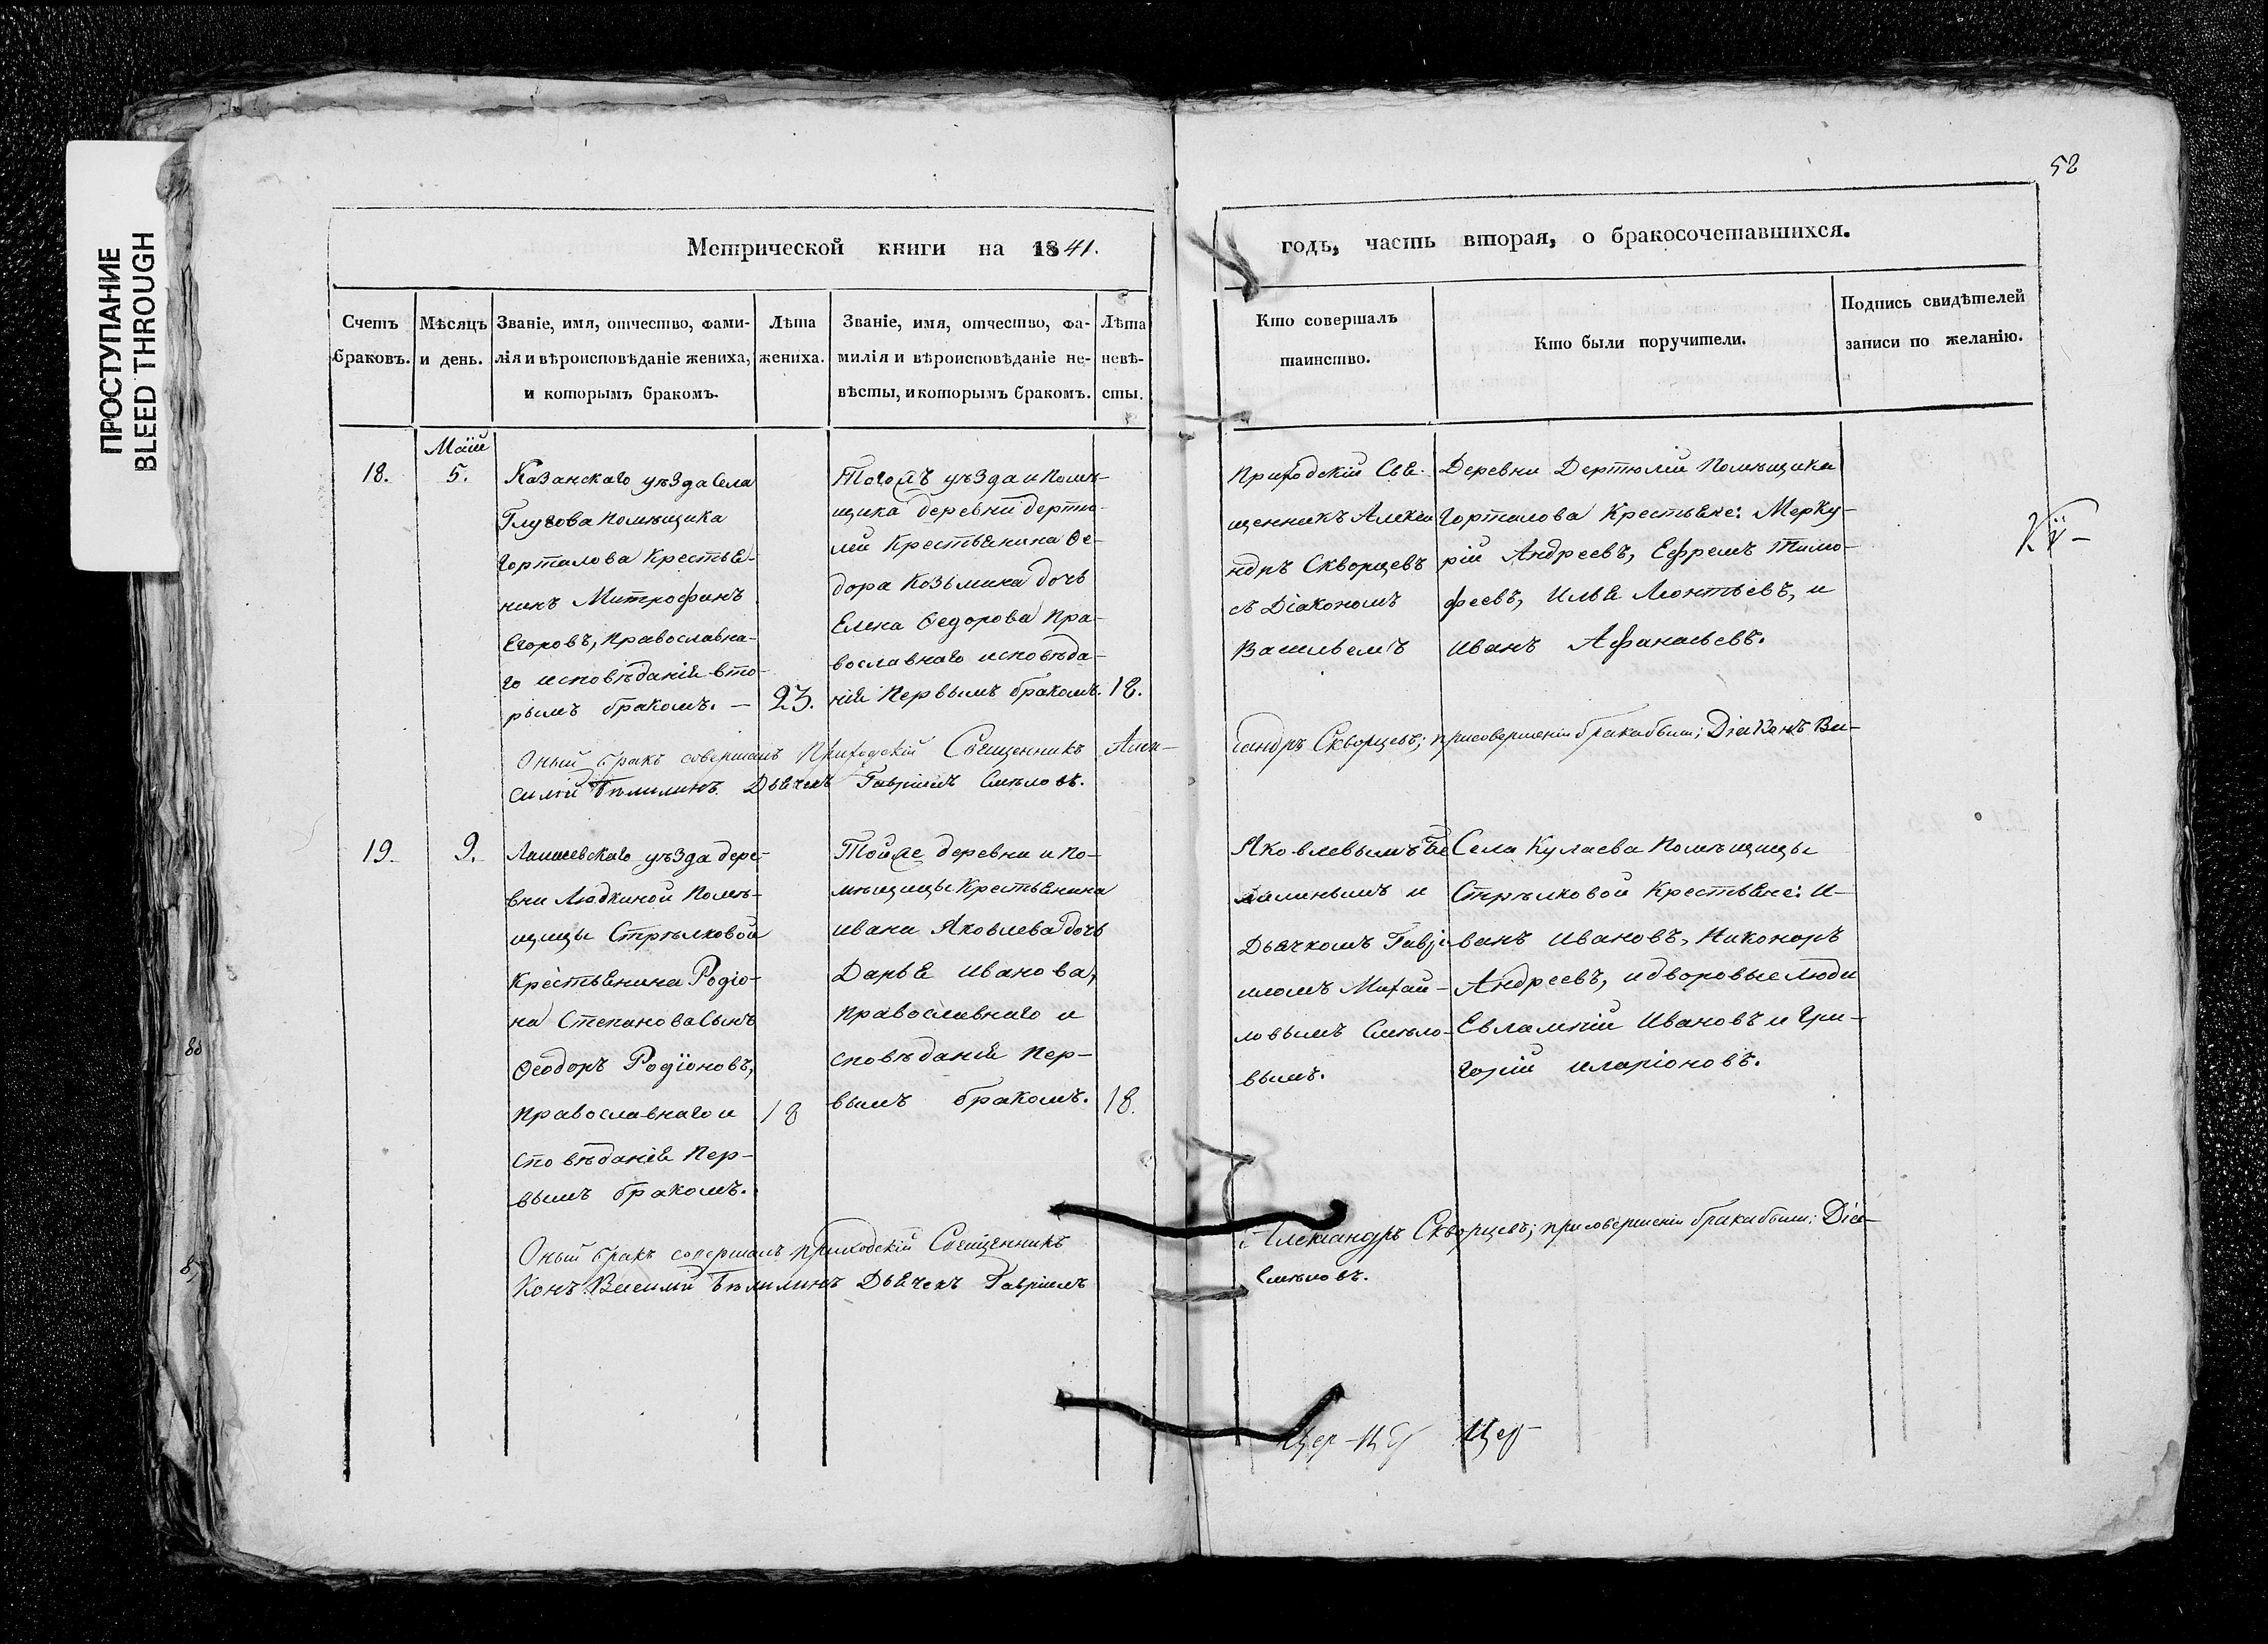 ПРОСТУПАНИЕ
BLEED THROUGH
52
Метрической книги на 1841.
годъ, часть вторая, о бракосочетавшихся.
Счетъ
браковъ.
Мѣсяцъ
и день.
Званіе, имя, отчество, фами-
лія и вѣроисповѣданіе жениха,
и которымъ бракомъ.
Лѣта
жениха.
Званіе, имя, отчество, фа-
милія и вѣроисповѣданіе не-
вѣсты, и которымъ бракомъ.
Лѣта
невѣ-
сты.
Кто совершалъ
таинство.
Кто были поручители.
Подпись свидѣтелей
записи по желанію.
18.
Маія
5.
Казанскаго уѣзда села
Глухова помѣщика
Горталова крестья-
нинъ Митрофанъ
Егоровъ, православна-
го исповѣданія вто-
рымъ бракомъ. —
23.
Тогожъ уѣзда и помѣ-
щика деревни Дертю-
лей крестьянина Ѳе-
дора Козьмина дочь
Елена Ѳедорова пра-
вославнаго исповѣда-
нія первымъ бракомъ.
18.
Приходскій Свя-
щенникъ Алекса
ндръ Скворцевъ
съ Діакономъ
Васильемъ
Деревни Дертюлей помѣщика
Горталова крестьяне: Мерку-
рій Андреевъ, Ефремъ Тимо-
феевъ, Илья Леонтьевъ, и
Иванъ Афанасьевъ.
Оный бракъ совершалъ Приходскій Священникъ Алек-
сандръ Скворцевъ; при совершеніи брака были: Діаконъ Ва-
силій Бѣлилинъ Дьячекъ Гавріилъ Смѣловъ.
19.
9.
Лаишевскаго уѣзда дере-
вни Людкиной помѣ-
щицы Стрѣлковой
крестьянина Родіо-
на Степанова сынъ
Ѳеодоръ Родіоновъ,
православнаго и
сповѣданія пер-
вымъ бракомъ.
18
Тойже деревни и по-
мѣщицы крестьянина
Ивана Яковлева дочь
Дарья Иванова,
православнаго и
сповѣданія пер-
вымъ бракомъ.
18.
Яковлевымъ Бѣ
лилинымъ и
Дьячкомъ Гаврі-
иломъ Михай-
ловымъ Смѣло-
вымъ.
Села Кулаева помѣщицы
Стрѣлковой крестьяне: И-
ванъ Ивановъ, Никоноръ
Андреевъ, и дворовые люди
Евлампій Ивановъ и Гри-
горій Иларіоновъ.
Оный бракъ совершалъ приходскій Священникъ
Александръ Скворцевъ; при совершеніи брака были: Діа-
конъ Василій Бѣлилинъ Дьячекъ Гавріилъ
Смѣловъ.